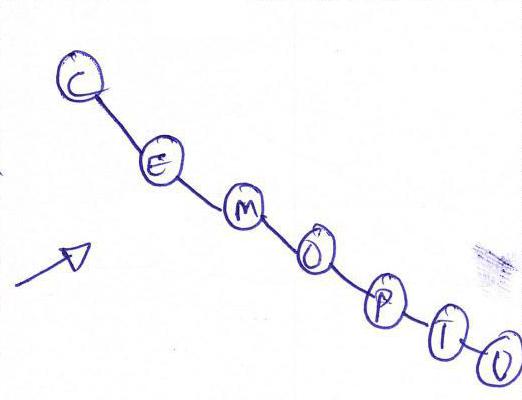 C
E
M
O
P
T
U